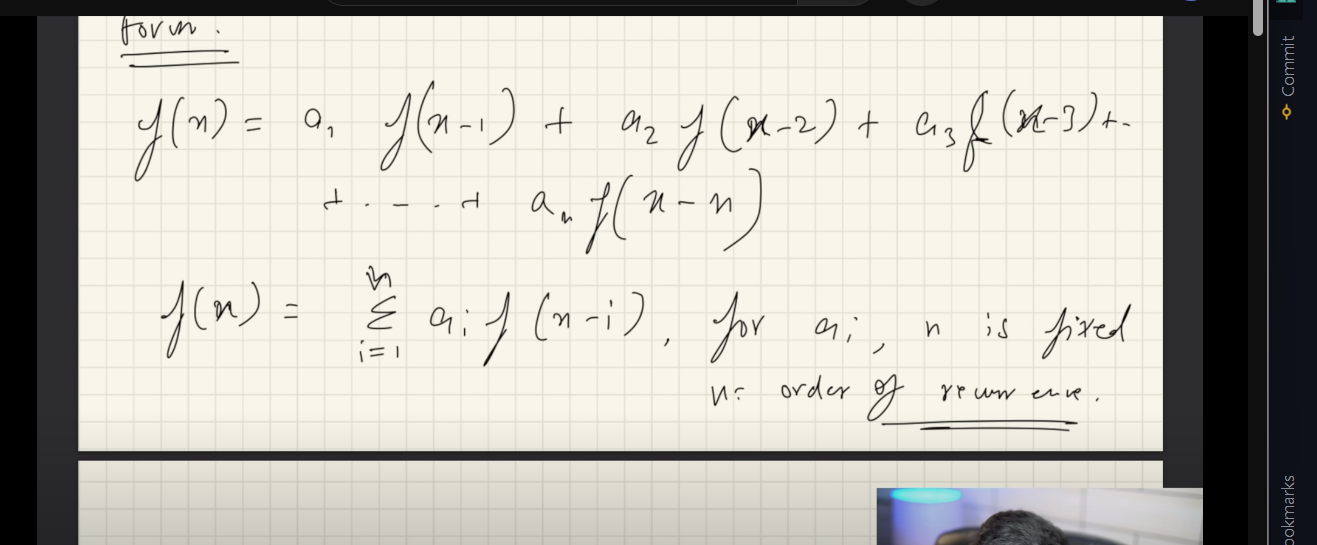 form.
f(x) = a₁ f(x-1) + a₂ f(x-2) + a₃ f(x-3) + -
+ . - . + aₙ f(x-n)
f(x) = Σᵢ₌₁ⁿ aᵢ f(x-i), for aᵢ, n is fixed
n = order of recurrence.
Commit
ookmarks